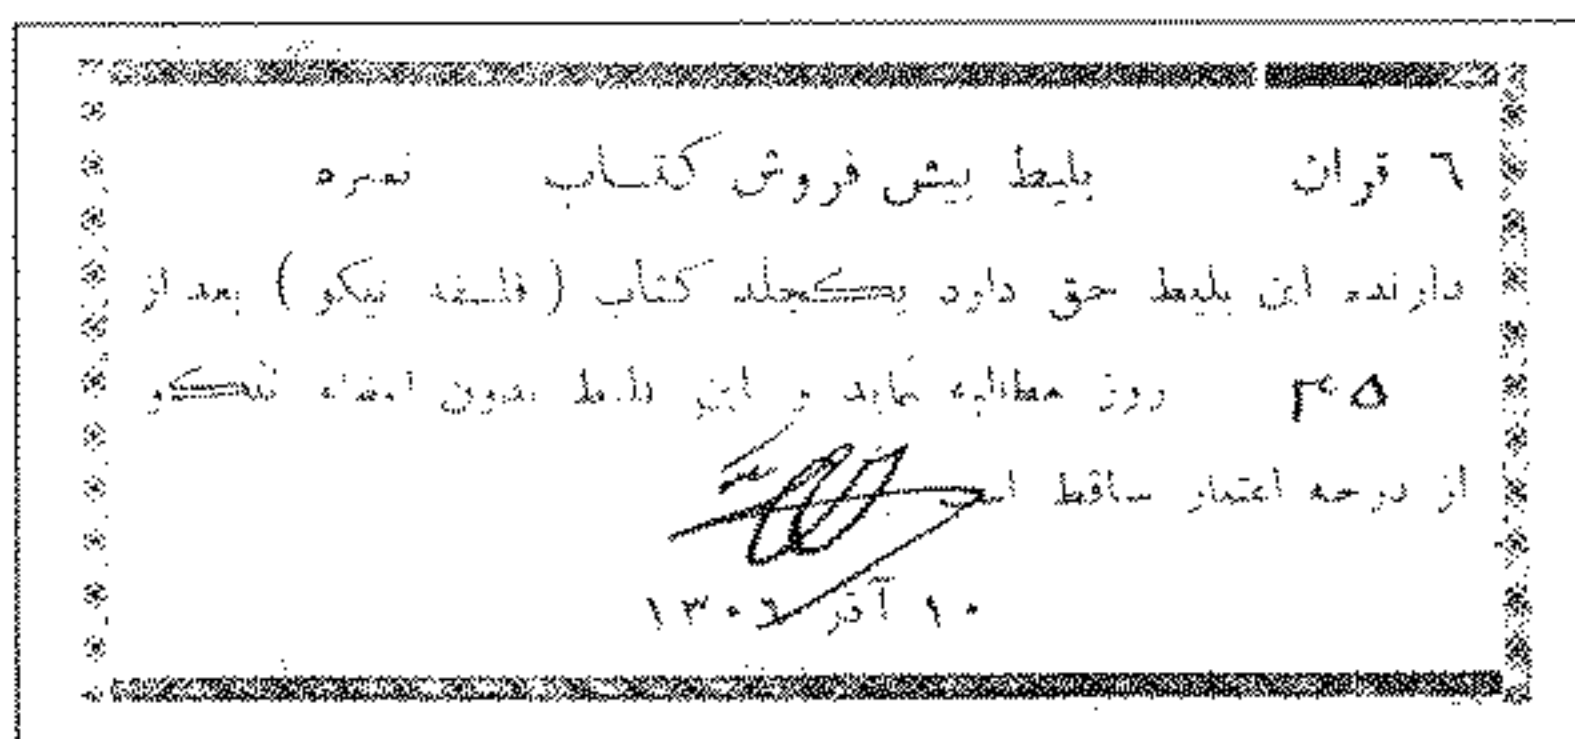 ٦ قران بلیط پیش فروش کتاب نمره
دارنده این بلیط حق دارد یکجلد کتاب ( فلسفه نیکو ) بعد از
۴۵ روز مطالبه نماید و این بلیط بدون امضاء نیکو
از درجه اعتبار ساقط است
۱۰ آذر ۱۳۰٦